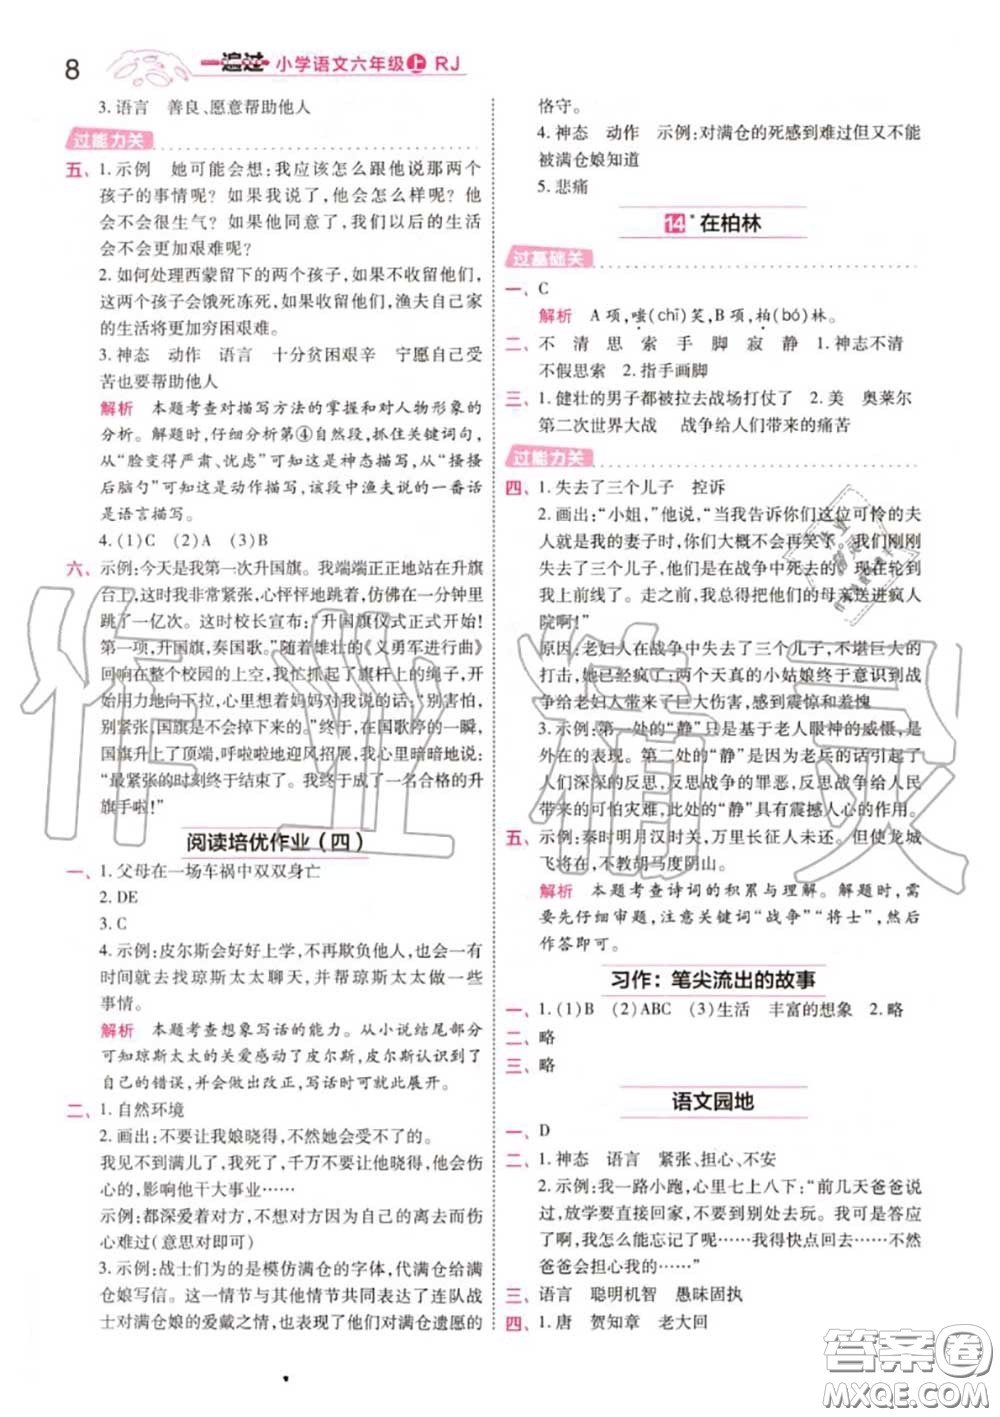 8
一遍过 小学语文六年级上 RJ
3.语言 善良、愿意帮助他人
过能力关
五、1.示例 她可能会想:我应该怎么跟他说那两个
孩子的事情呢？如果我说了,他会怎么样呢？他
会不会很生气？如果他同意了,我们以后的生活
会不会更加艰难呢？
2.如何处理西蒙留下的两个孩子,如果不管他们,
这两个孩子会饿死冻死,如果抱过来,渔夫自己家
的生活将更加穷困艰难。
3.神态 动作 语言 十分贫困艰辛 宁愿自己受
苦也要帮助他人
解析 本题考查对描写方法的掌握和对人物形象的
分析。解题时,仔细分析第④自然段,抓住关键词句,
从“脸变得严肃、忧虑”可知这是神态描写,从“搔搔
后脑勺”可知这是动作描写,该段中渔夫说的一番话
是语言描写。
4.(1)C (2)A (3)B
六、示例:今天是我第一次升国旗。我端端正正地站在升旗
台上,这时我非常紧张,心怦怦地跳,仿佛在一分钟里
跳了一亿次。这时校长宣布:“升国旗仪式正式开始!
第一项,升国旗,奏国歌。”随着雄壮的《义勇军进行曲》
回响在整个校园的上空,我忙抓起了旗杆上的绳子,开
始用力地向下拉,心里想着妈妈对我说的话:“别害怕,
别紧张,国旗是不会掉下来的。”终于,在国歌停的一瞬,
国旗升上了顶端,呼啦啦地迎风招展,我忙暗暗地说:
“最紧张的时刻终于结束了。我终于成了一名合格的升
旗手啦!”
阅读培优作业(四)
一、1.父母在一场车祸中双双身亡
2.DE
3.C
4.示例:皮尔斯会好好上学,不再欺负他人,也会有
时间就去找琼斯太太聊天,并帮琼斯太太做一些
事情。
解析 本题考查想象写话的能力。从小说结尾部分
可知琼斯太太的关爱感动了皮尔斯,皮尔斯认识到了
自己的错误,并会做出改正,写话时可就此展开。
二、1.自然环境
2.画出:不要让我娘晓得,不然她会受不了的。
我见不到满儿了,我死了,千万不要让他晓得,他会伤
心的,影响他干大事业……
示例:都深爱着对方,不想让对方因自己的离去而伤
心难过(意思对即可)
3.示例:战士们为的是模仿满仓的字体,代满仓给满
仓娘写信。这一情节与其他情节共同表达了连队战
士对满仓娘的爱戴之情,也表现了他们对满仓遗愿的
恪守。
4.神态 动作 示例:对满仓的死感到难过但又不能
被满仓娘知道
5.悲痛
14* 在柏林
过基础关
一、C
解析 A项,嗤(chī)笑,B项,柏(bó)林。
二、不 清 思 索 手 脚 寂 静 1.神志不清
不假思索 2.指手画脚
三、1.健壮的男子都被拉去战场打仗了 2.美 奥莱尔
第二次世界大战 战争给人们带来的痛苦
过能力关
四、1.失去了三个儿子 控诉
2.画出:“小姐,”他说,“当我告诉你们这位可怜的夫
人就是我妻子时,你们大概不会再笑了。我们刚刚
失去了三个儿子,他们是在战争中死去的。现在轮到
我上前线了。走之前,我总得把他们的母亲送进疯人
院啊!”
原因:老妇人在战争中失去了三个儿子,不堪巨大的
打击,她已经疯了;两个天真的小姑娘终于意识到战
争给老妇人带来了巨大伤害,感到震惊和羞愧
3.示例:第一处的“静”只是基于老人眼神的威慑,是
外在的表现。第二处的“静”是因为老兵的话引起了
人们深刻的反思,反思战争的罪恶,反思战争给人民
带来的可怕灾难,比如此的“静”具有震撼人心的作用。
五、示例:秦时明月汉时关,万里长征人未还。但使龙城
飞将在,不教胡马度阴山。
解析 本题考查诗词的积累与理解。解题时,需
要先仔细审题,注意关键词“战争”“将士”,然后
作答即可。
习作：笔尖流出的故事
一、1.(1)B (2)ABC (3)生活 丰富的想象 2.略
二、略
三、略
语文园地
一、D
二、1.神态 语言 紧张、担心、不安
2.示例:我一路小跑,心里七上八下:“前几天爸爸说
过,放学要直接回家,不要到别处去玩。我可是答应
了啊,我怎么能忘记了呢……我得快点回去……不然
爸爸会担心我的……”
三、语言 聪明机智 愚昧固执
四、1.唐 贺知章 老大回
作业精灵
答案圈
MXQE.COM